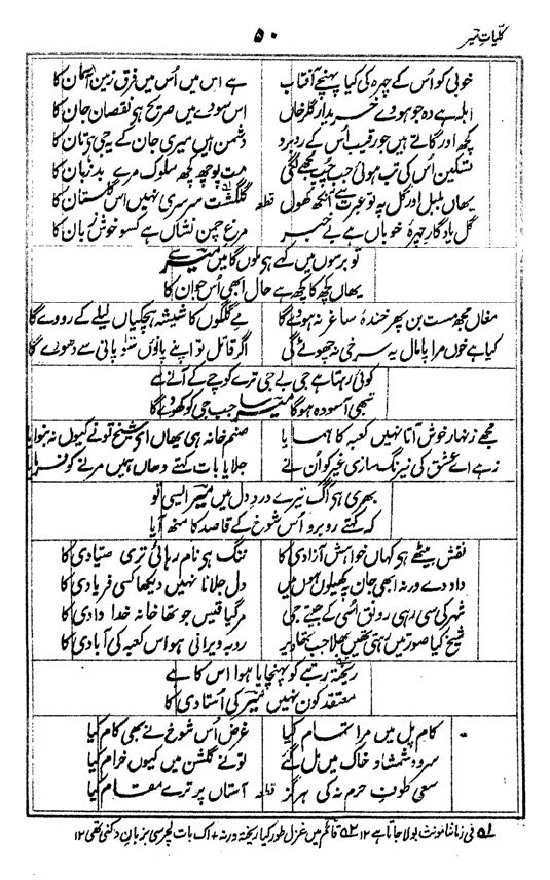 کلیاتِ میر
۵۰
خوبی کو اُس کے چہرہ کی کیا پہنچے آفتاب ہے اس میں اُس میں فرق زمین آسمان کا
ابلہ ہے وہ جو ہووے خریدار گلرخاں اس سودے میں صریح ہو نقصان جان کا
کچھ اور گاتے ہیں جو رقیب اُس کے روبرو دشمن ہیں میری جان کے یہ جی ہو تان کا
تسکین اُس کی تب ہوئی جب چُپ مجھے لگی مت پوچھ کچھ سلوک مرے بد زبان کا
یہاں بلبل اور گل پہ تو عبرت سے آنکھ کھول قطعہ گلگشت سرسری نہیں اس گلستان کا
گل یادگار چہرۂ خوباں ہے بے خبر مرغ چمن نشاں ہے کسو خوش زبان کا
تو برسوں میں کہے ہو ملوں گا میں میرؔ سے
یھاں کچھ کا کچھ ہے حال ابھی اُس جوان کا
مغاں مجھ مست بن پھر خندۂ ساغر نہ ہووے گا مے گلگوں کا شیشہ ہچکیاں لے لے کے رووے گا
کیا ہے خوں مرا پامال یہ سرخی نہ چھوٹے گی اگر قاتل تو اپنے پاؤں سو پانی سے دھووے گا
کوئی رہتا ہے جی بے جی ترے کوچے کے آنے سے
تبھی آسودہ ہوگا میرؔ سا جب جی کو کھووے گا
مجھے زنہار خوش آتا نہیں کعبہ کا ہمسایا صنم خانہ ہی یھاں اے شیخ تو نے کیوں نہ بنوایا
زہے اے عشق کی نیرنگ سازی غیر کو اُن نے جلایا بات کہتے وھاں ہمیں مرنے کو فرمایا
بھری ہو آگ تیرے دردِ دل میں میرؔ ایسی تو
کہ کہتے روبرو اُس شوخ کے قاصد کا منھ آیا
نقش بیٹھے ہو کہاں خواہش آزادی کا ننگ ہو نام رہائی تری صیادی کا
داد دے ورنہ ابھی جان پہ کھیلوں ہوں میں دل جلانا نہیں دیکھا کسی فریادی کا
شہر کی سی رہی رونق اُسی کے جیتے جی مر گیا قیس جو تھا خانہ خدا وادی کا
شیخ کیا صورتیں رہتی تھیں بھلا جب تھا دیر روبہ ویرانی ہو اس کعبہ کی آبادی کا
ریختہ رتبے کو پہنچایا ہوا اس کا ہے
معتقد کون نہیں میرؔ کی اُستادی کا
کام پل میں مرا تمام کیا غرض اُس شوخ نے بھی کام کیا
سرو و شمشاد خاک میں مل گئے تو نے گلشن میں کیوں خرام کیا
سعی طوفِ حرم نہ کی ہرگز قطعہ آستاں پر ترے مقام کیا
لہ فی زماننا مونث بولا جاتا ہے ۱۲ ۲ قائم میں غزل طور کیا ریختہ ورنہ + اک بات لچر سی بزبانِ دکنی تھی ۱۲